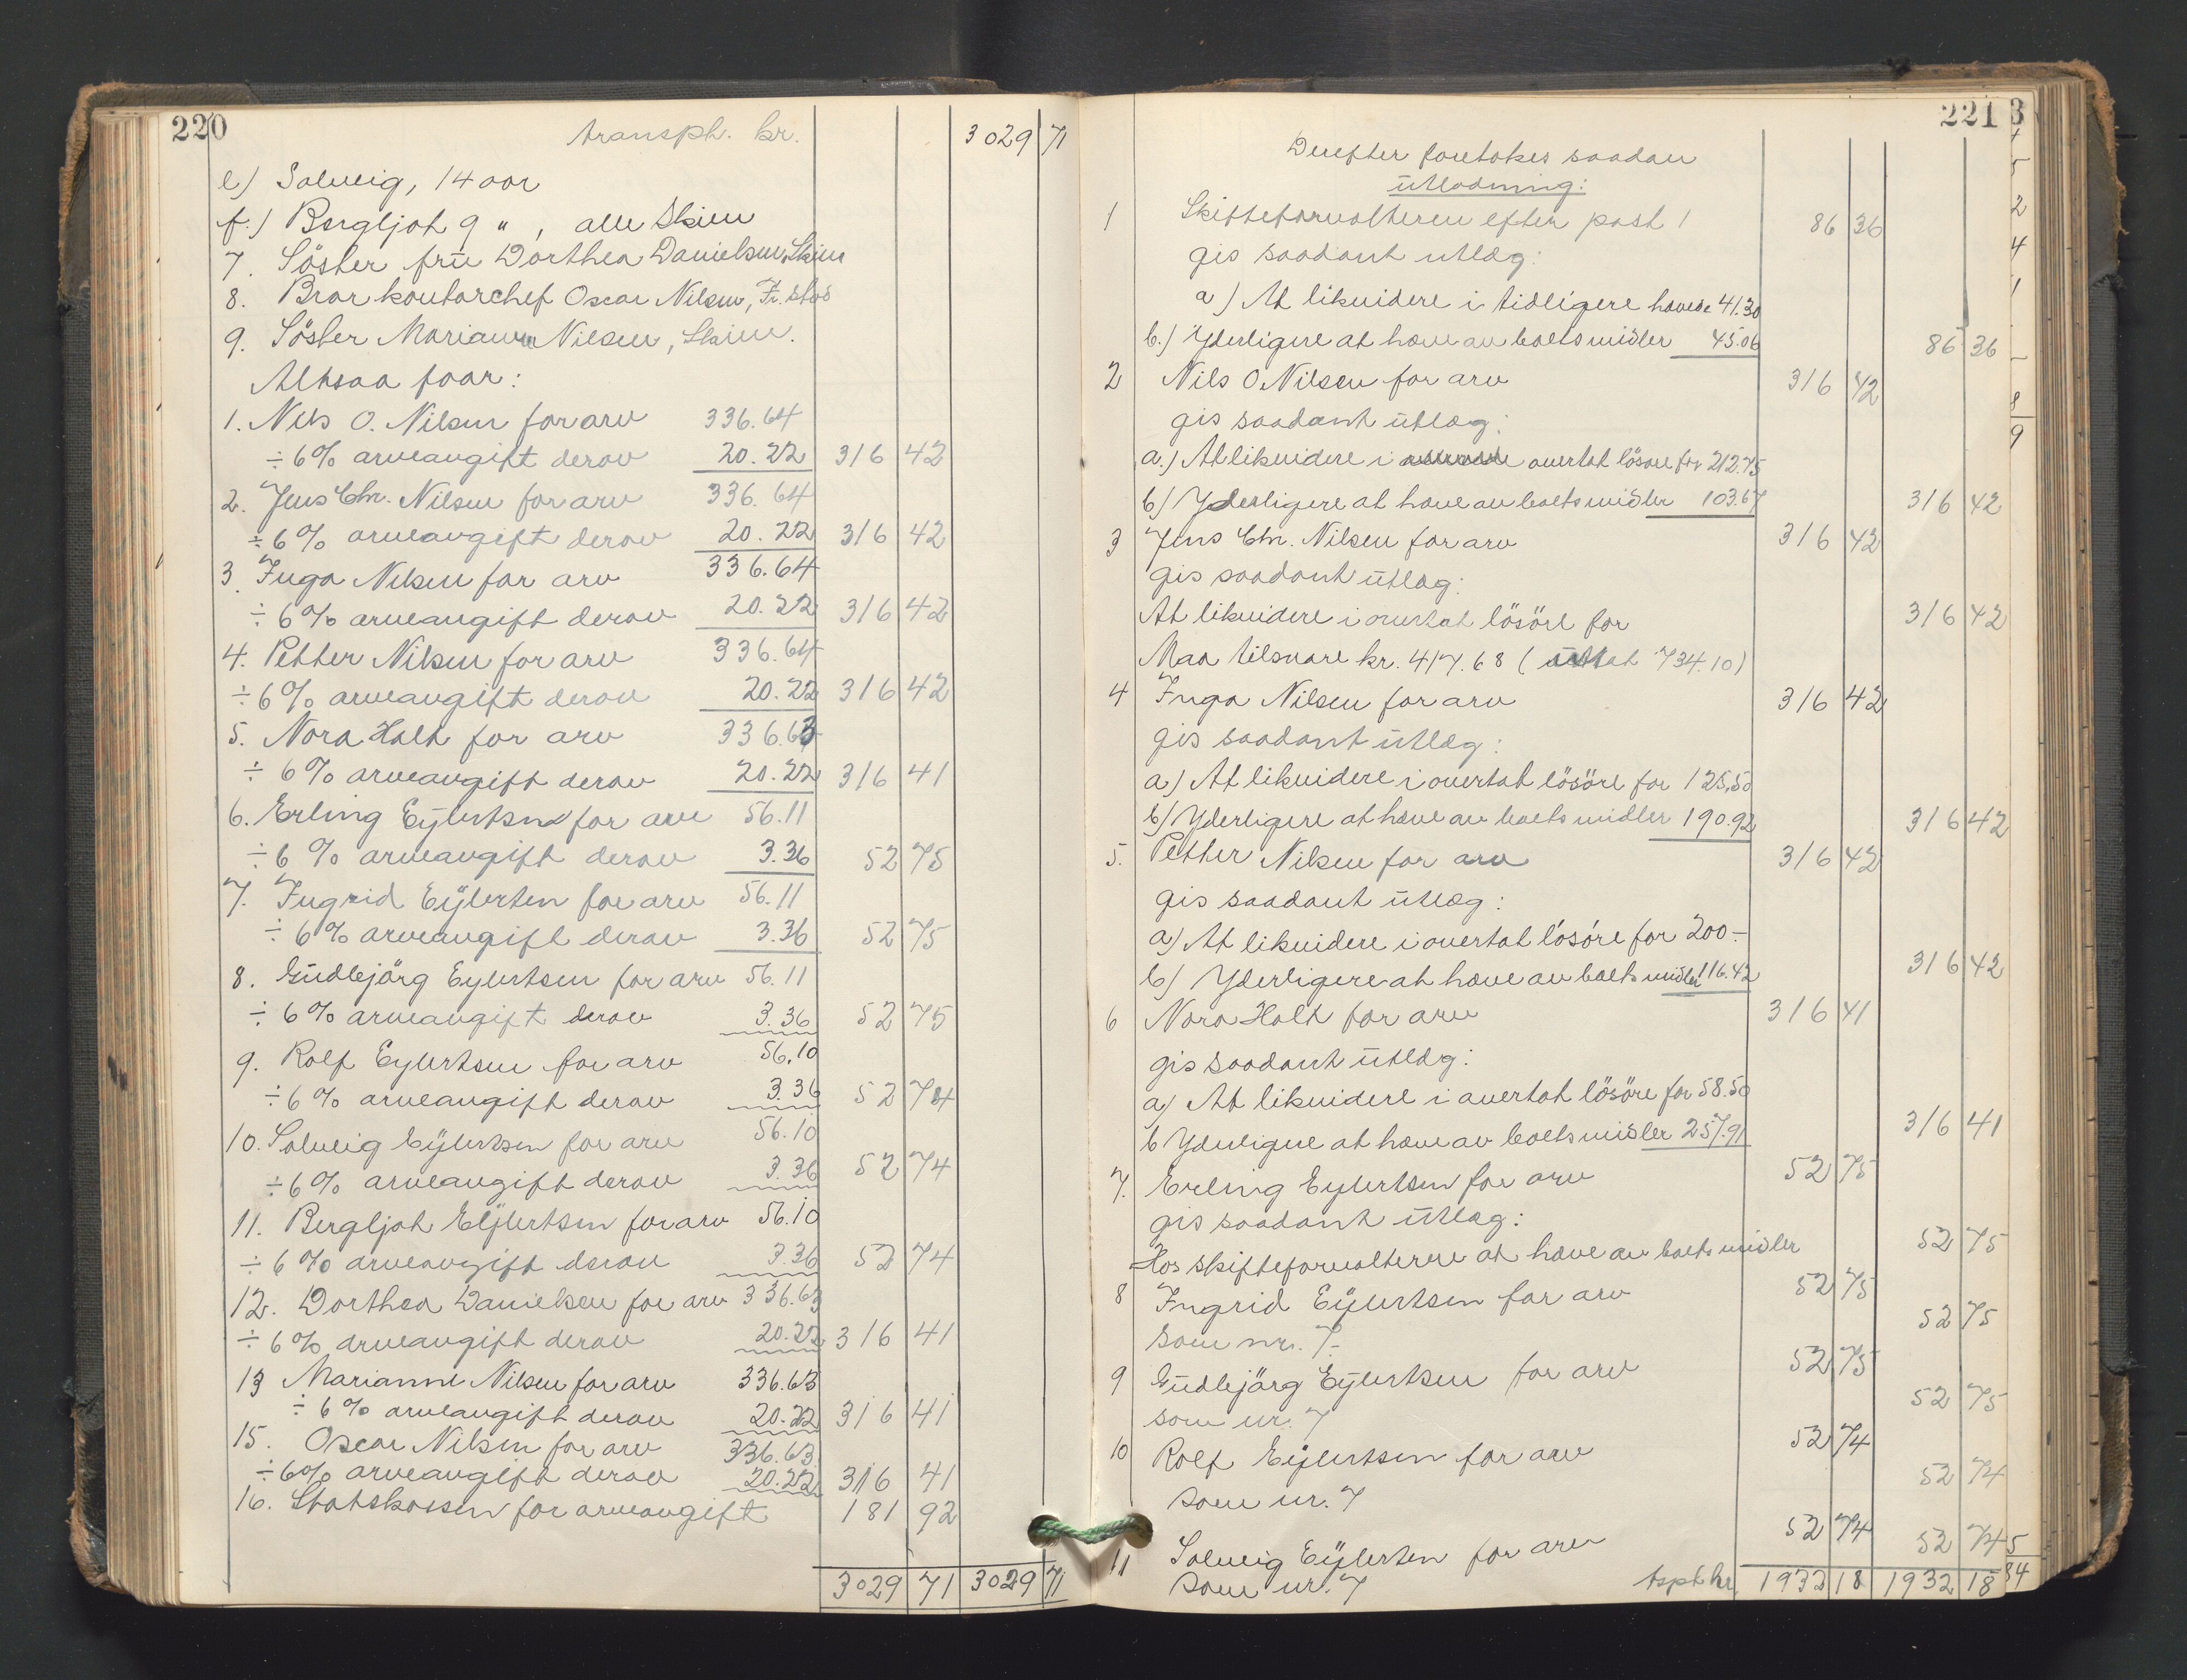 220
transpt. kr. 3029 71
e) Solveig, 14 aar
f.) Bergljot 9 " , alle Skien
7. Söster frü Dorthea Danielsen, Skien
8. Bror kontorchef Oscar Nilsen, Fr.stad
9. Söster Marianne Nilsen, Skien.
Altsaa faar:
1. Nils O. Nilsen for arv 336.64
÷ 6% arveavgift derav 20.22 316 42
2. Jens Chr. Nilsen for arv 336.64
÷ 6% arveavgift derav 20.22 316 42
3. Inga Nilsen for arv 336.64
÷ 6% arveavgift derav 20.22 316 42
4. Petter Nilsen for arv 336.64
÷ 6% arveavgift derav 20.22 316 42
5. Nora Holt for arv 336.63
÷ 6% arveavgift derav 20.22 316 41
6. Erling Eylertsen for arv 56.11
÷ 6% arveavgift derav 3.36 52 75
7. Ingrid Eÿlertsen for arv 56.11
÷ 6% arveavgift derav 3.36 52 75
8. Gudbjörg Eylertsen for arv 56.11
÷ 6% arveavgift derav 3.36 52 75
9. Rolf Eylertsen for arv 56.10
÷ 6% arveavgift derav 3.36 52 74
10. Solveig Eÿlertsen for arv 56.10
÷ 6% arveavgift derav 3.36 52 74
11. Bergljot Eÿlertsen for arv 56.10
÷ 6% arveavgift derav 3.36 52 74
12. Dorthea Danielsen for arv 336.63
÷ 6% arveavgift derav 20.22 316 41
13 Marianne Nilsen for arv 336.63
÷ 6% arveavgift derav 20.22 316 41
15. Oscar Nilsen for arv 336.63
÷ 6% arveavgift derav 20.22 316 41
16. Statskassen for arveavgift 181 92
3029 71 3029 71
221
Derefter foretokes saadan
ütlodning:
1 Skifteforvalteren efter post 1 86 36
gis saadant utlæg:
a) At likvidere i tidligere hævede 41.30
b.) Yderligere at hæve av boets midler 45.06 86 36
2 Nils O. Nilsen for arv 316 42
gis saadant ütlæg:
a.) At likvidere i overtat lösöre for 212.75
b) Yderligere at hæve av boets midler 103.67 316 42
3 Jens Chr. Nilsen for arv 316 42
gis saadant ütlæg:
At likvidere i overtat lösöre for 316 42
Maa tilsvare kr. 417.68 (üttat 734.10)
4 Inga Nilsen for arv 316 42
gis saadant ütlæg:
a) At likvidere i overtat lösöre for 125,50
b) Yderligere at hæve av boets midler 190.92 316 42
5. Petter Nilsen for arv 316 42
gis saadant ütlæg:
a) At likvidere i overtat lösöre for 200.-
b) Yderligere at hæve av boets midler 116.42 316 42
6 Nora Holt for arv 316 41
gis saadant ütlæg:
a) At likvidere i overtat lösöre for 58.50
b Yderligere at hæve av boets midler 257.91 316 41
7. Erling Eylertsen for arv 52 75
gis saadant ütlæg:
Hos skifteforvalteren at hæve av boets midler 52 75
8 Ingrid Eÿlertsen for arv 52 75
som nr. 7.- 52 75
9 Gudbjörg Eÿlertsen for arv 52 75
som nr. 7 52 75
10 Rolf Eÿlertsen for arv 52 74
som nr. 7 52 74
11 Solveig Eÿlertsen for arv 52 74
som nr. 7 52 74
tspt kr. 1932 18 1932 18